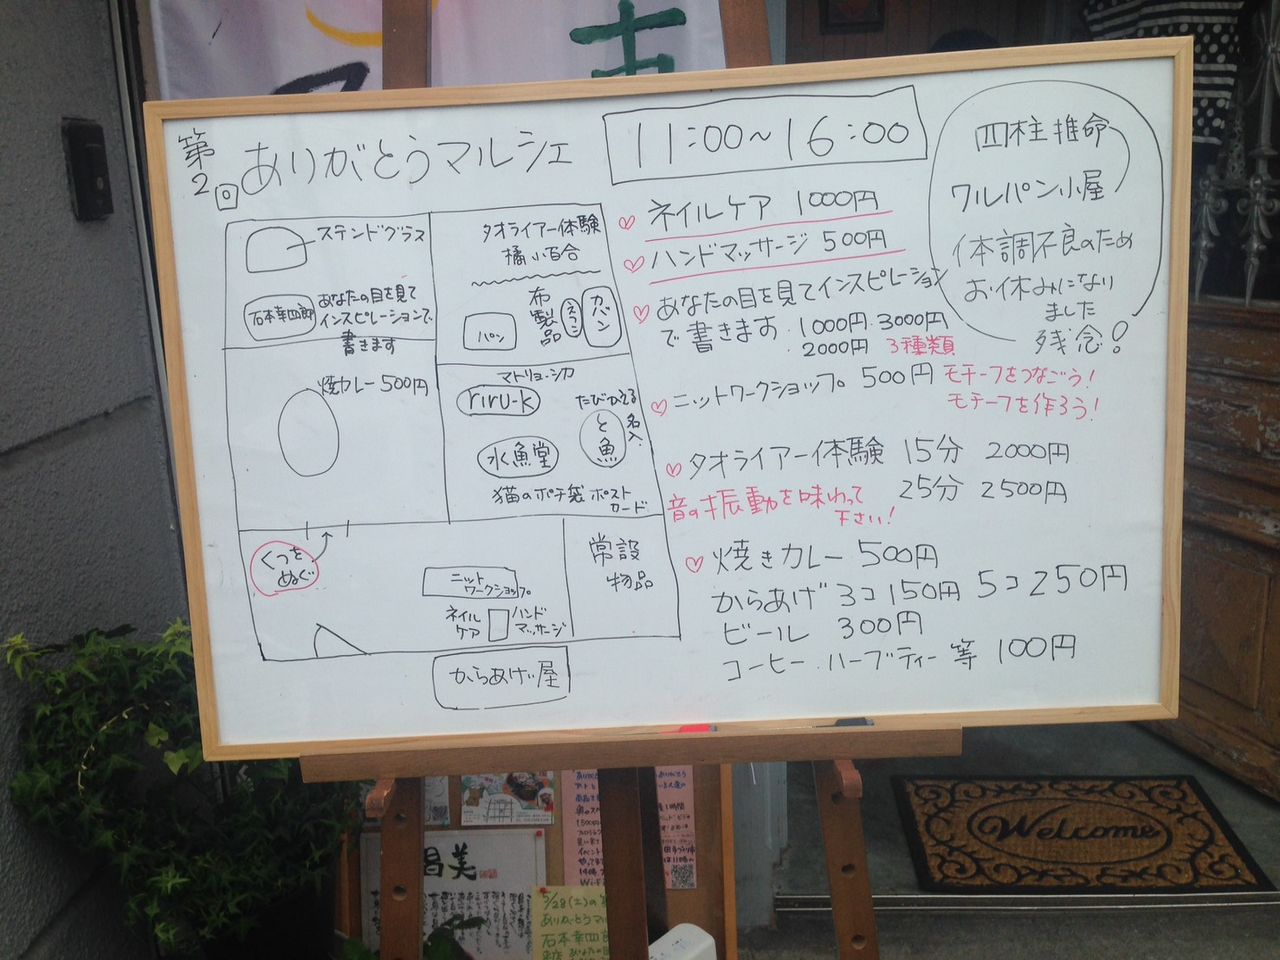 第2回 ありがとうマルシェ
11:00〜16:00
ステンドグラス
石本幸四郎
あなたの目を見て
インスピレーションで
書きます
タオライアー体験
橘小百合
パン
布製品
エプロン
カバン
焼カレー 500円
マトリョーシカ
riru-k
水魚堂
たびかえる
と魚
名入
猫のポチ袋 ポスト
カード
くつを
ぬぐ
ニット
ワークショップ
ネイル
ケア
ハンド
マッサージ
常設
物品
からあげ屋
♡ ネイルケア 1000円
♡ ハンドマッサージ 500円
♡ あなたの目を見てインスピレーション
で書きます 1000円 3000円
2000円 3種類
♡ ニットワークショップ 500円 モチーフをつなごう!
モチーフを作ろう!
♡ タオライアー体験 15分 2000円
音の振動を味わって
下さい!
25分 2500円
♡ 焼きカレー 500円
からあげ 3コ 150円 5コ 250円
ビール 300円
コーヒー.ハーブティー等 100円
四柱推命
ワルパン小屋
体調不良のため
お休みになり
ました
残念!
Welcome
昌美
5/28(土)の
ありがとうマル
石本幸四郎